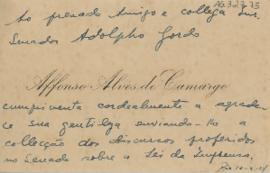 Ao presado Amigo e collega Snr.
Senador Adolpho Gordo
Affonso Alves de Camargo
cumprimenta cordealmente e agrade-
ce sua gentileza enviando-lhe a
collecção dos discursos proferidos
no Senado sobre a Lei da Imprensa.